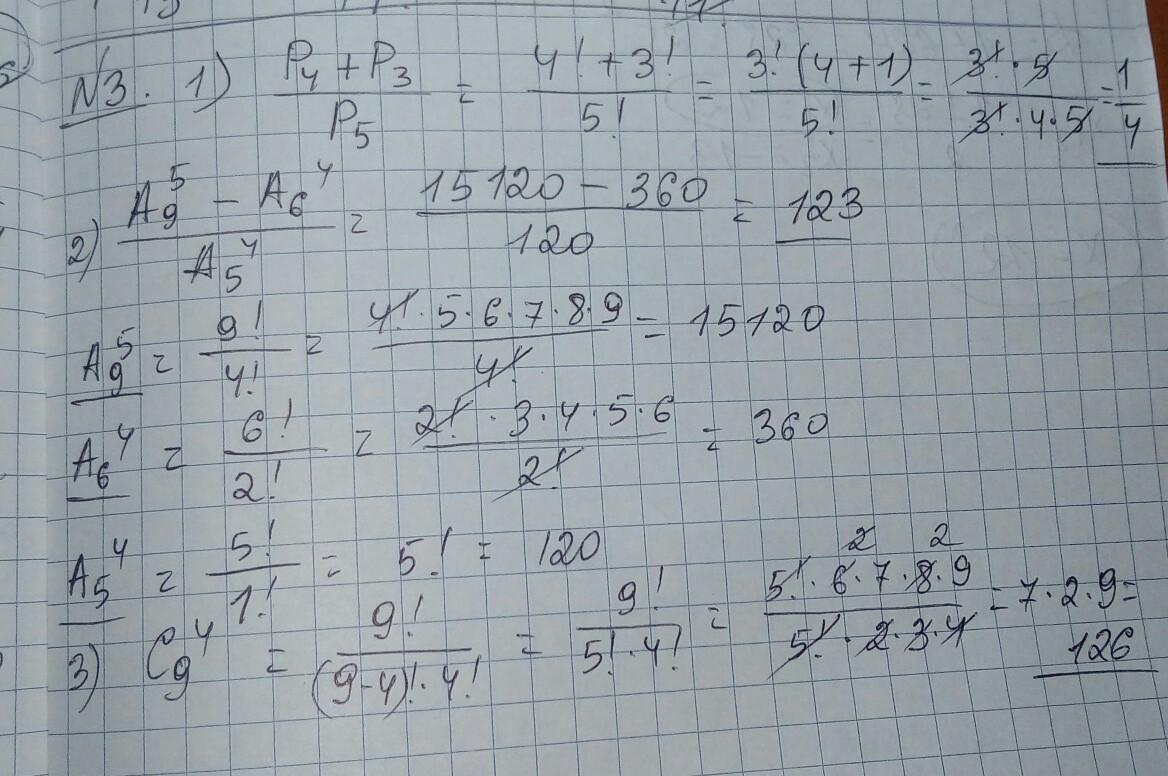 N3. 1) (P₄ + P₃)/P₅ = (4! + 3!)/5! = (3! (4 + 1))/5! = (3! · 5)/(3! · 4 · 5) = 1/4
2) (A₉⁵ − A₆⁴)/A₅⁴ = (15120 − 360)/120 = 123
A₉⁵ = 9!/4! = (4! · 5 · 6 · 7 · 8 · 9)/4! = 15120
A₆⁴ = 6!/2! = (2! · 3 · 4 · 5 · 6)/2! = 360
A₅⁴ = 5!/1! = 5! = 120
3) C₉⁴ = 9!/((9-4)! · 4!) = 9!/(5! · 4!) = (5! · 6 · 7 · 8 · 9)/(5! · 2 · 3 · 4) = 7 · 2 · 9 =
2 2
126